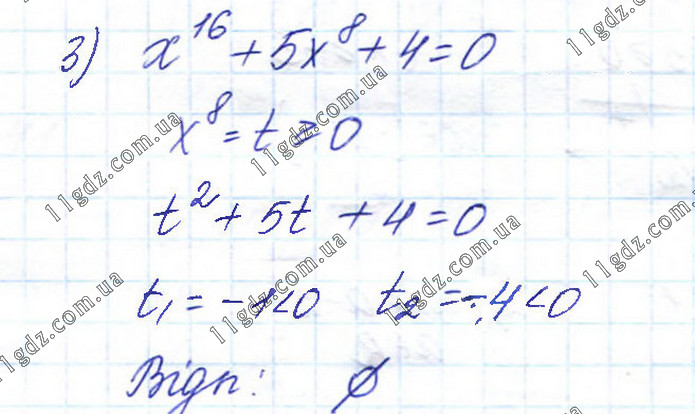 3) x¹⁶ + 5x⁸ + 4 = 0
x⁸ = t ≥ 0
t² + 5t + 4 = 0
t₁ = -1 < 0 t₂ = -4 < 0
Відп: ∅
11gdz.com.ua
11gdz.com.ua
11gdz.com.ua
11gdz.com.ua
11gdz.com.ua
11gdz.com.ua
11gdz.com.ua